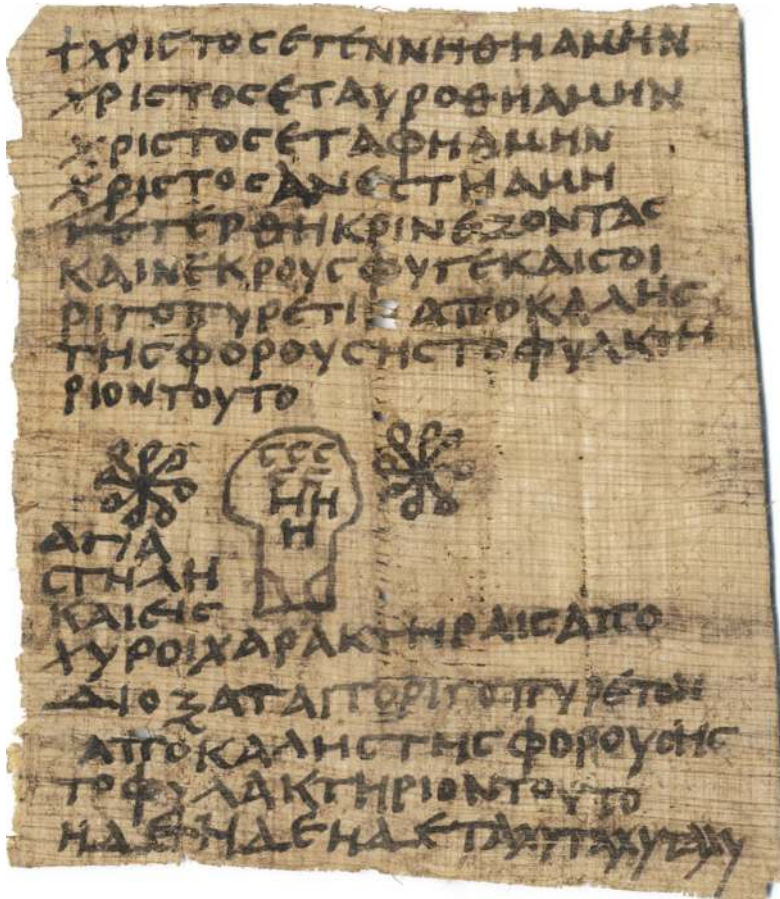 +ΧΡΙСΤΟСΕΓΕΝΝΗΘΗΑΜΗΝ
ΧΡΙСΤΟСΕΤΑΥΡΟΘΗΑΜΗΝ
ΧΡΙСΤΟСΕΤΑΦΗΑΜΗΝ
ΧΡΙСΤΟСΑΝΕСΤΗΑΜΗ
ΓΕΓΕΡΘΗΚΡΙΝΕΖΟΝΤΑС
ΚΑΙΝΕΚΡΟΥСΦΥΓΕΚΑΙСΟΙ
ΡΙΓΟΠΥΡΕΤΙΞΑΠΟΚΑΛΗС
ΤΗСΦΟΡΟΥСΗСΤΟΦΥΛΚΤΗ
ΡΙΟΝΤΟΥΤΟ
ССС
ΗΗ
Η
ΑΓΙΑ
СΤΗΛΗ
ΚΑΙΕΙС
ΧΥΡΟΙΧΑΡΑΚΤΗΡΑΙСΑΠΟ
ΔΙΟΞΑΤΑΙΤΟΡΙΓΟΠΥΡΕΤΟΝ
ΑΠΟΚΑΛΗСΤΗСΦΟΡΟΥСΗС
ΤΟΦΥΛΑΚΤΗΡΙΟΝΤΟΥΤΟ
ΗΔΕΗΔΕΗΔΕΤΑΧΥΤΑΧΥΤΑΧΥ